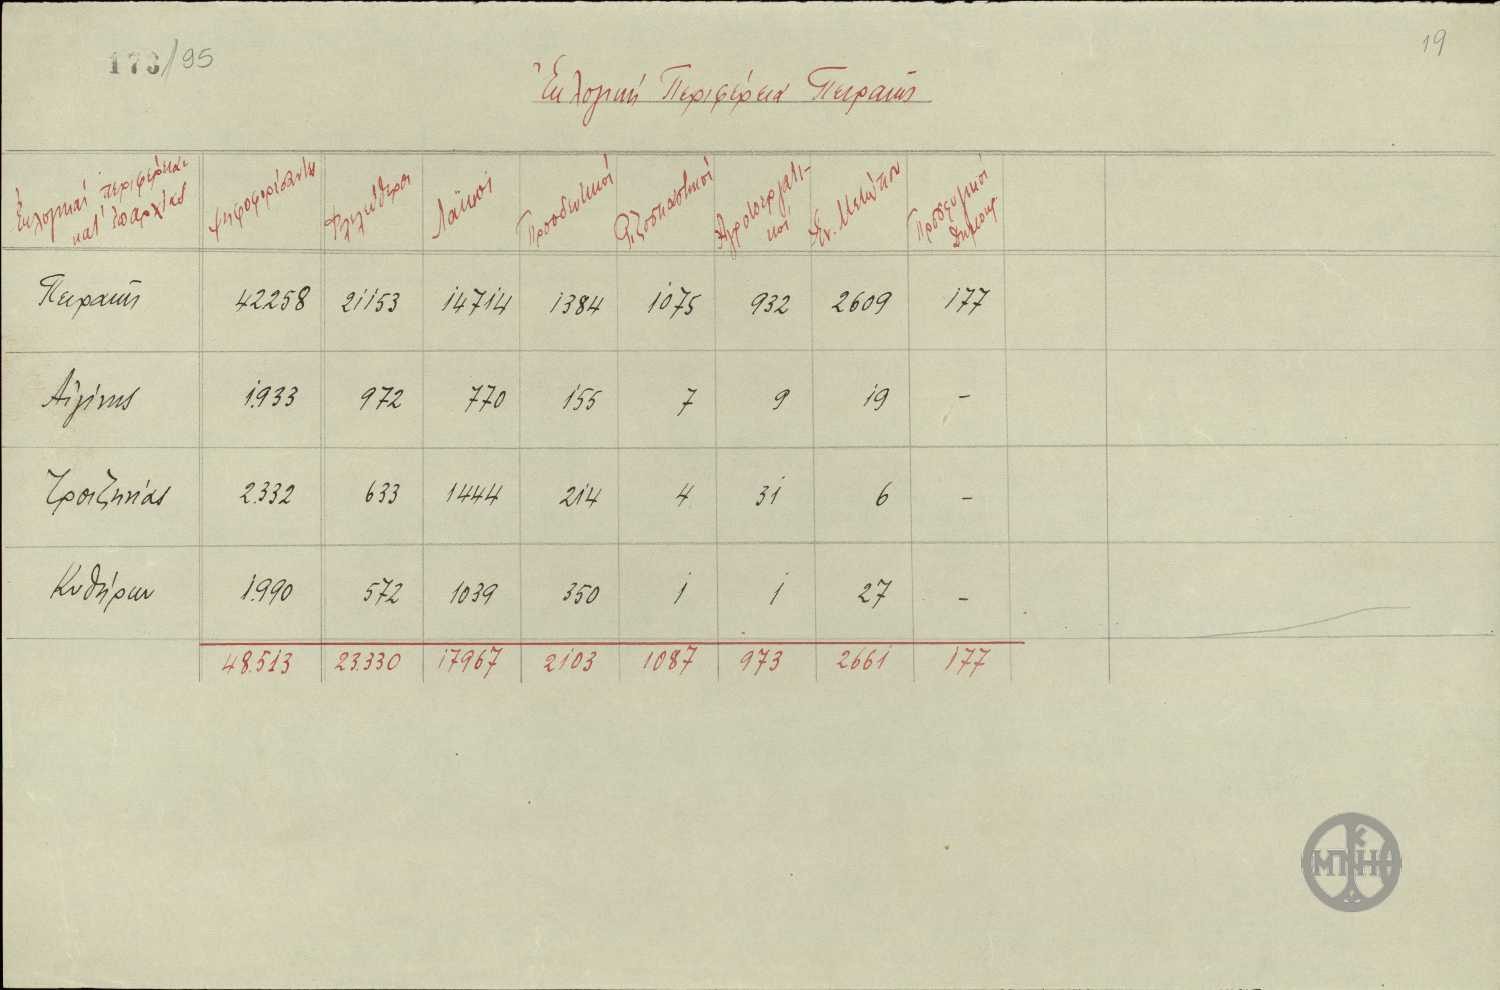 173/95
19
Ἐκλογική Περιφέρεια Πειραιῶς
Ἐκλογικαί περιφέρειαι κατ' ἐπαρχίας Ψηφοφορίσαντες Φιλελεύθεροι Λαϊκοί Προοδευτικοί Ριζοσπαστικοί Αγροτοεργατικοί Εν. Μετώπου Προσφυγικοί
Πειραιῶς 42258 21153 14714 1384 1075 932 2609 177
Αἰγίνης 1.933 972 770 155 7 9 19 -
Τροιζηνίας 2.332 633 1444 214 4 31 6 -
Κυθήρων 1.990 572 1039 350 1 1 27 -
48.513 23.330 17967 2103 1087 973 2661 177
ΜΠΗ